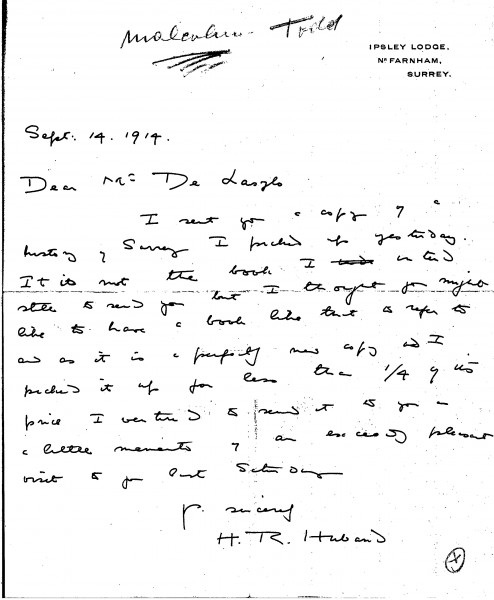 Malcolm
IPSLEY LODGE,
Nr FARNHAM,
SURREY.
Sept. 14. 1914.
Dear Mr De Laszlo
I send you a copy of a
history of Surrey I picked up yesterday.
It is not the book I intend
still to send you but I thought you might
like to have a book like that to refer to
and as it is a perfectly new copy and I
picked it up for less than 1/4 of its
price I ventured to send it to you as
a little memento of an exceedingly pleasant
visit to you last Saturday
Yr. sincerely
H. R. Huband
X